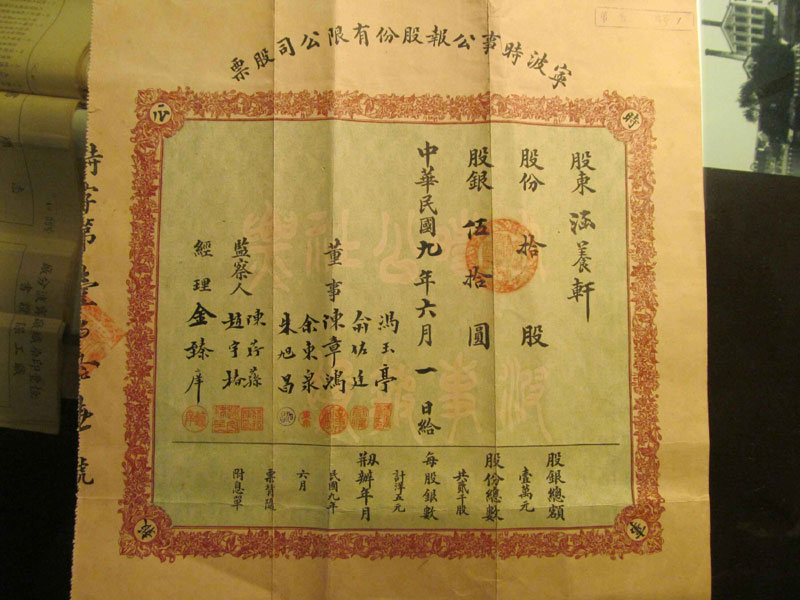 寧波時事公報股份有限公司股票
股東 涵養軒
股份 拾 股
股銀 伍拾 圓
中華民國九年六月一日給
馮玉亭
俞佐廷
董事 陳章鴻
余東泉
朱旭昌
監察人 陳荇蓀
趙宇椿
經理 金臻庠
股銀總額
壹萬元
股份總數
共貳千股
每股銀數
計洋五元
剏辦年月
民國九年
六月
票背隨
附息單
時
公